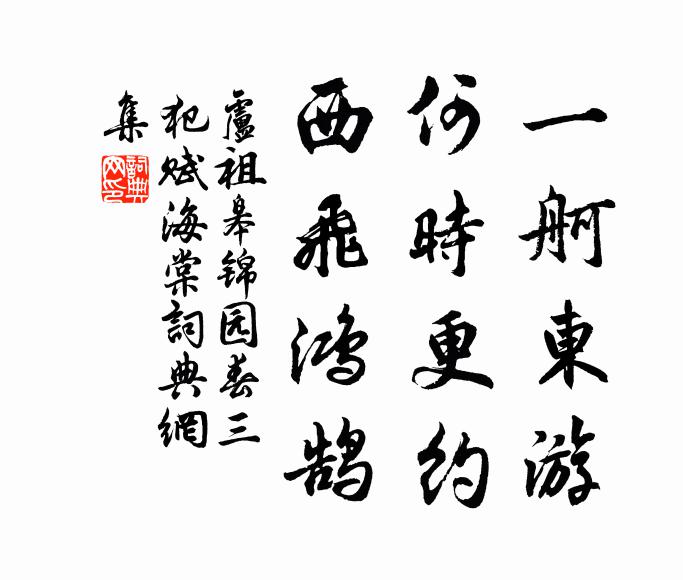 一舸東游
何時更約
西飛鴻鹄
盧祖皋锦园春三
犯赋海棠詞典網
集
詞典網印